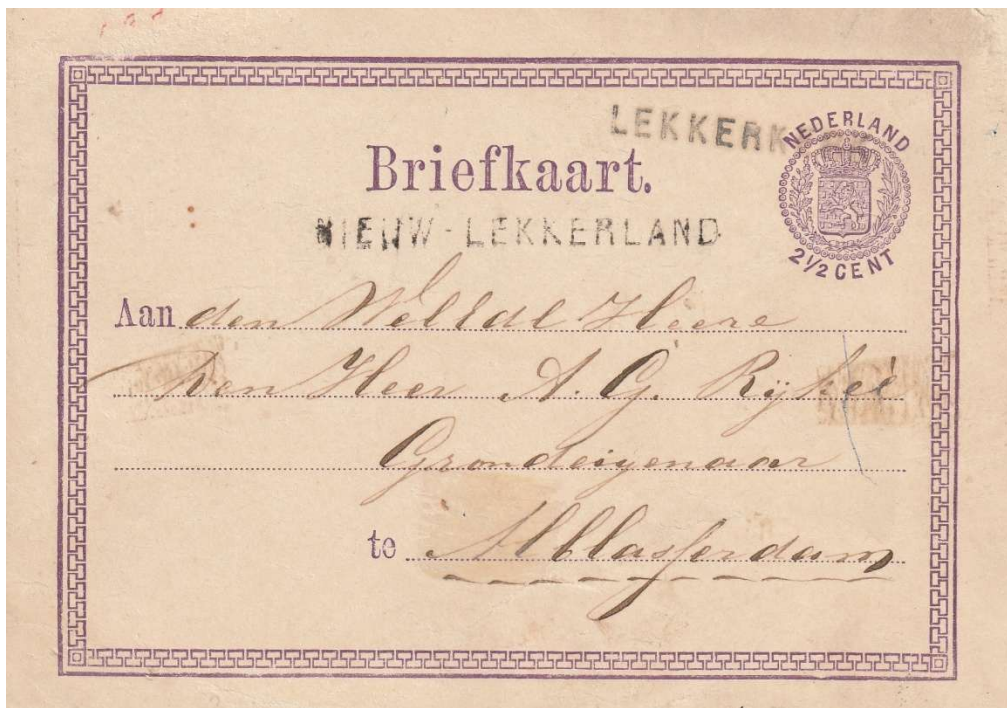 LEKKERK
NEDERLAND
Briefkaart.
NIEUW-LEKKERLAND
2½ CENT
Aan den WelEdl Heere
Den Heer A. G. Rijkée
Grondeigenaar
te Alblasserdam